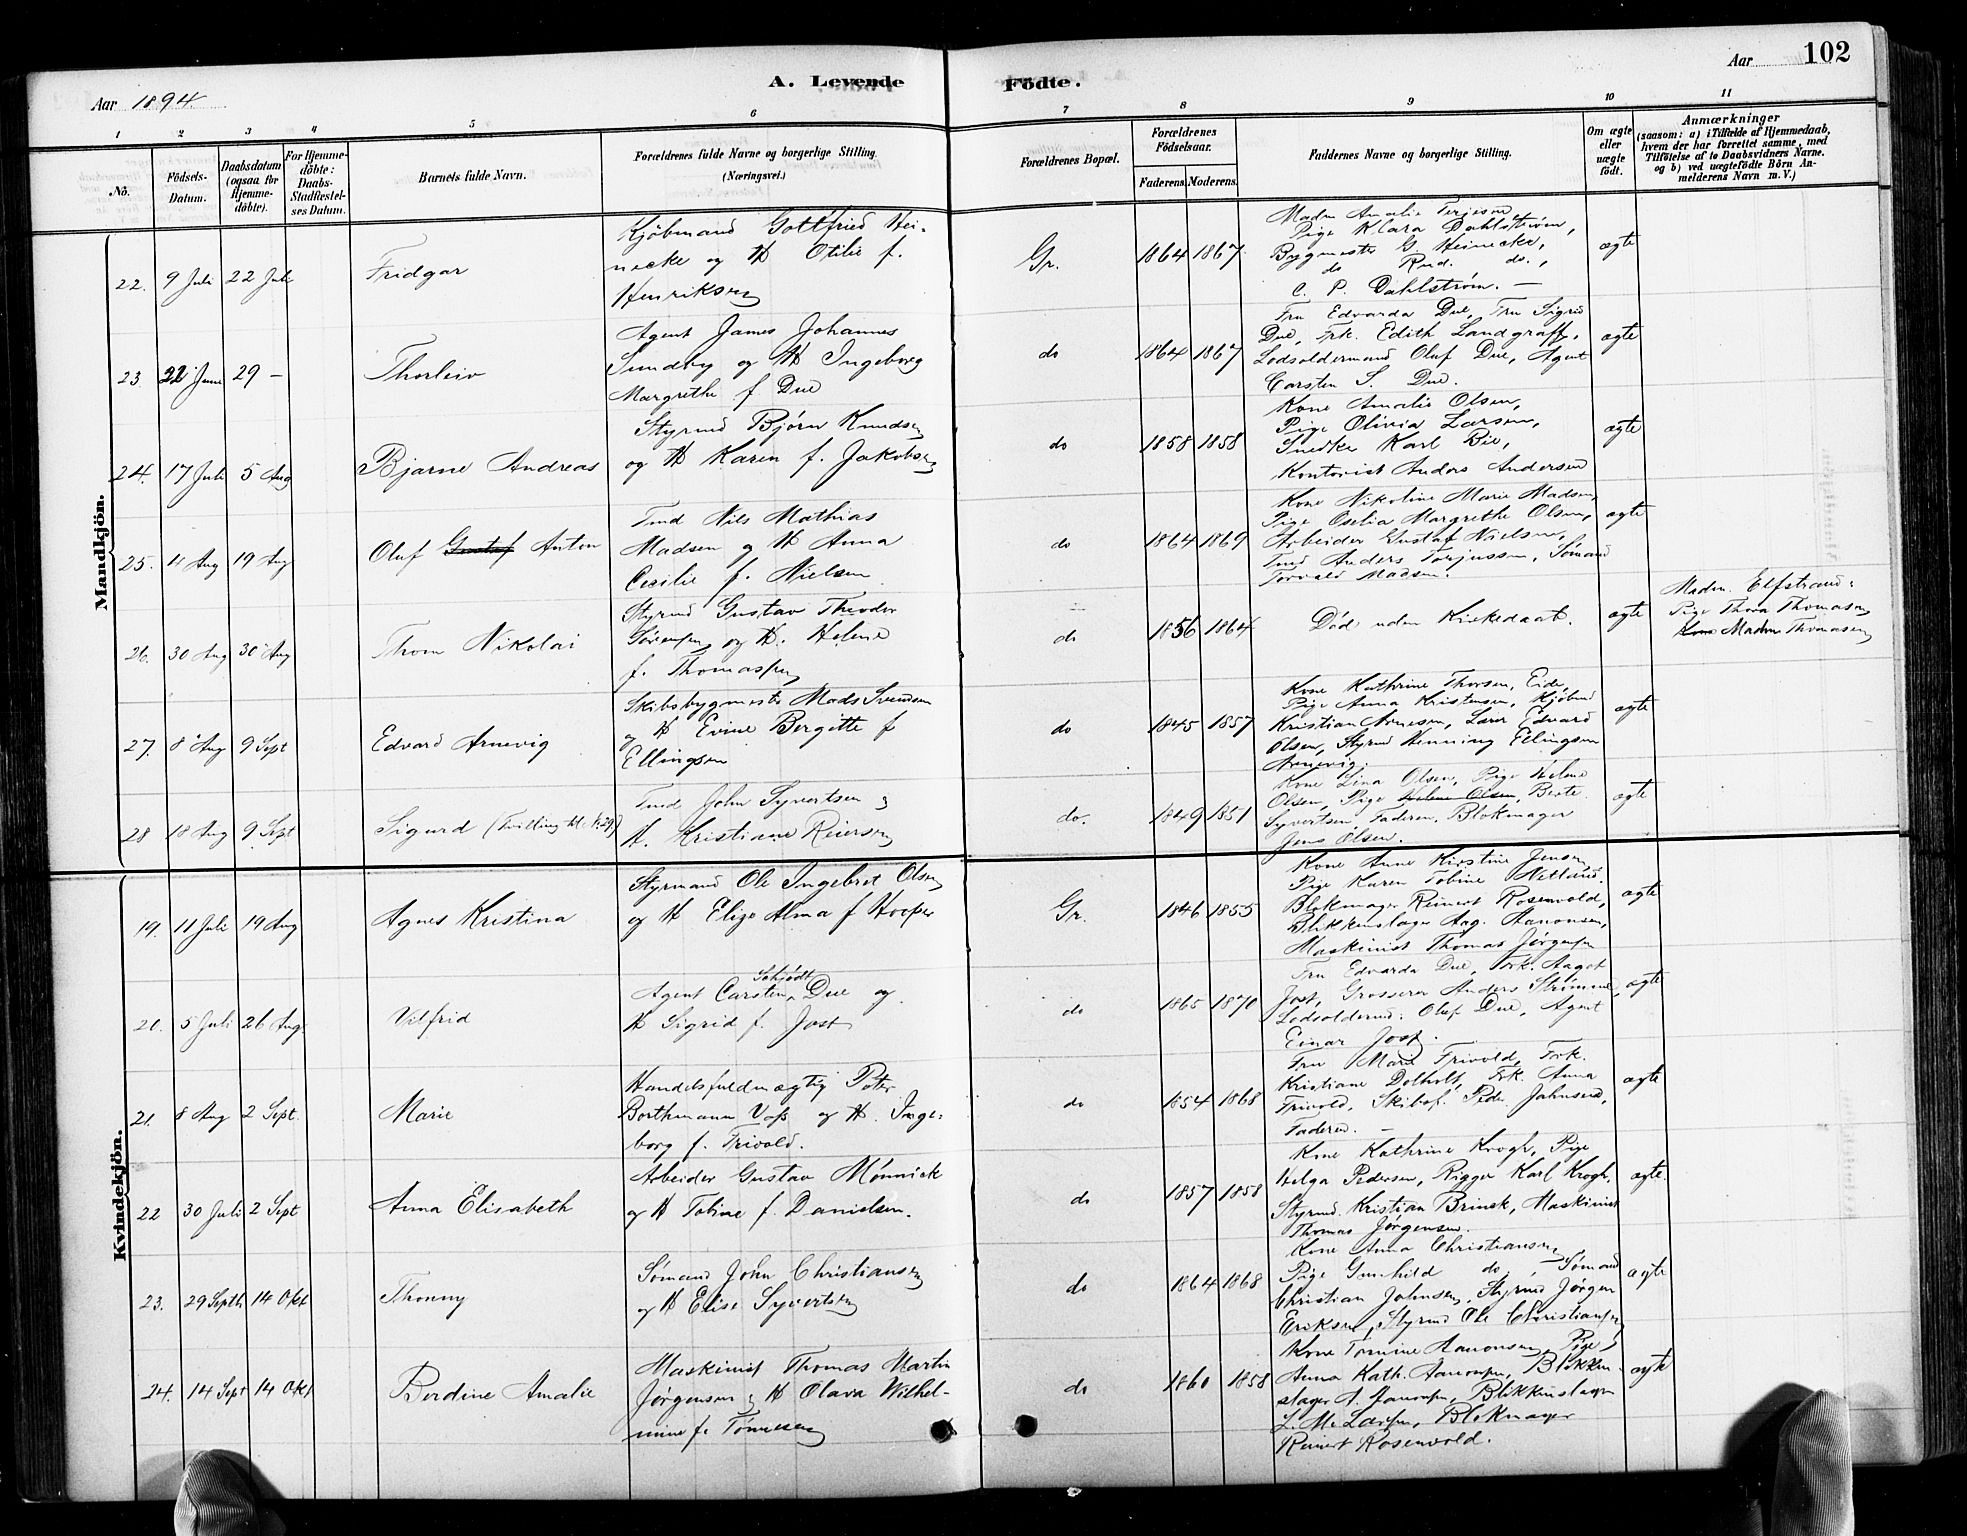 Aar 1894
A. Levende
Födte.
Aar
102
1
2
3
4
5
6
7
8
9
10
11
No.
Födsels-
Datum.
Daabsdatum
(ogsaa for
Hjemme-
döbte).
For Hjemme-
döbte:
Daabs-
Stadfæstel-
ses Datum.
Barnets fulde Navn.
Forældrenes fulde Navne og borgerlige Stilling.
(Næringsvei.)
Forældrenes Bopæl.
Forældrenes
Födselsaar.
Faderens.
Moderens.
Faddernes Navne og borgerlige Stilling.
Om ægte
eller
uægte
födt.
Anmærkninger
(saasom: a) i Tilfælde af Hjemmedaab,
hvem der har forrettet samme, med
Tilföielse af to Daabsvidners Navne.
og b) ved uægtefödte Börn An-
melderens Navn m. V.)
Mandkjön.
22. 9 Juli 22 Juli
Fridgar
Kjöbmand Gottfried Hei-
necke og H Otilie f.
Henriksen
Gr.
1864 1867
Madm Amalie Terjesen
Pige Klara Dahlström,
Bygmester G. Heinecke,
do Rud. do.,
C. P. Dahlström. —
ægte
23. 22 Juni 29 —
Thorleiv
Agent James Johannes
Sundby og H Ingeborg
Margrethe f Due
do
1864 1867
Fru Edvarda Due, Fru Sigrid
Due, Frk. Edith Landgraff,
Lodsoldermand Oluf Due, Agent
Carsten S. Due.
ægte
24. 17 Juli 5 Aug
Bjarne Andreas
Styrmd Björn Knudsen
og H Karen f. Jakobsen
do
1858 1858
Kone Amalie Olsen,
Pige Olivia Larsen,
Snedker Karl Bie,
Kontorist Anders Andersen
ægte
25. 4 Aug 19 Aug
Oluf Gustaf Anton
Tmd Nils Mathias
Madsen og H Anna
Cecilie f. Nielsen
do
1864 1869
Kone Nikoline Marie Madsen,
Pige Oselia Margrethe Olsen,
Arbeider Gustaf Nielsen,
Tmd Anders Terjussen, Sömand
Torvald Madsen.
ægte
26. 30 Aug 30 Aug
Thom Nikolai
Styrmd Gustav Theodor
Sörensen og H. Helene
f. Thomassen
do
1856 1864
Död uden Kirkedaab.
ægte
Madm. Elfstrand:
Pige Thora Thomasen
Kone Madm Thomasen
27. 8 Aug 9 Sept
Edvard Arnevig
Skibsbygmester Mads Svendsen
og H Evine Bergitte f
Ellingsen
do
1845 1857
Kone Kathrine Thorsen, Eide,
Pige Anna Kristensen, Kjöbmd
Kristian Arnesen, Lærer Edvard
Olsen, Styrmd Henning Ellingsen
Arnevig.
ægte
28 18 Aug 9 Sept
Sigurd (Tvilling til k. 29)
Tmd John Syvertsen og
H. Kristiane Reiersen
do.
1849 1851
Kone Lina Olsen, Pige Helene
Olsen, Pige Helene Olsen, Berte
Syvertsen Faderen, Blokmager
Jens Olsen.
ægte
Kvindekjön.
19. 11 Juli 19 Aug
Agnes Kristina
Styrmand Ole Ingebret Olsen
og H Elize Alma f Hooper
Gr.
1846 1855
Kone Anne Kirstine Jensen,
Pige Karen Tobine Netland,
Blokmager Reinert Rosenvold,
Blikkenslager Aag. Aanonsen,
Maskinist Thomas Jörgensen
ægte
20. 5 Juli 26 Aug
Vilfrid
Schjödt
Agent Carsten Due og
H Sigrid f. Jost
do
1865 1870
Fru Edvarda Due, Frk. Aagot
Jost, Grosserer Anders Strömme,
Lodsoldermd: Oluf Due, Agent
Einar Jost.
ægte
21. 8 Aug 2 Sept.
Marie
Handelsfuldmægtig Peter
Borthmann Voss og H. Inge-
borg f. Frivold.
do
1854 1868
Fru Marie Frivold, Frk.
Kristiane Dolholt, Frk. Anna
Frivold, Skibsf. Peder Jahnsen,
Faderen. —
ægte
22 30 Juli 2 Sept
Anna Elisabeth
Arbeider Gustav Mönnick
og H Tobine f. Danielsen.
do
1857 1858
Kone Kathrine Krogh, Pige
Helga Pedersen, Rigger Karl Krogh,
Styrmd. Kristian Brinck, Maskinist
Thomas Jörgensen.
ægte.
23. 29 Septb 14 Okt
Thonny
Sömand John Christiansen
og H Elise Syvertsen
do
1864 1868
Kone Anna Christiansen
Pige Gunhild do, Sömand
Christian Johnsen, Styrmd Jörgen
Eriksen, Styrmd Ole Christiansen
ægte
24. 14 Sept 14 Okt
Berdine Amalie
Maskinist Thomas Martin
Jörgensen og H Olava Wilhel-
mine f. Tönnesen
do
1860 1858
Kone Tomine Aanonsen, Pige
Anna Kath. Aanonsen, Blikken-
slager A. Aanonsen, Blikkenslager
L. M. Larsen, Blokmager
Reinert Rosenvold.
ægte